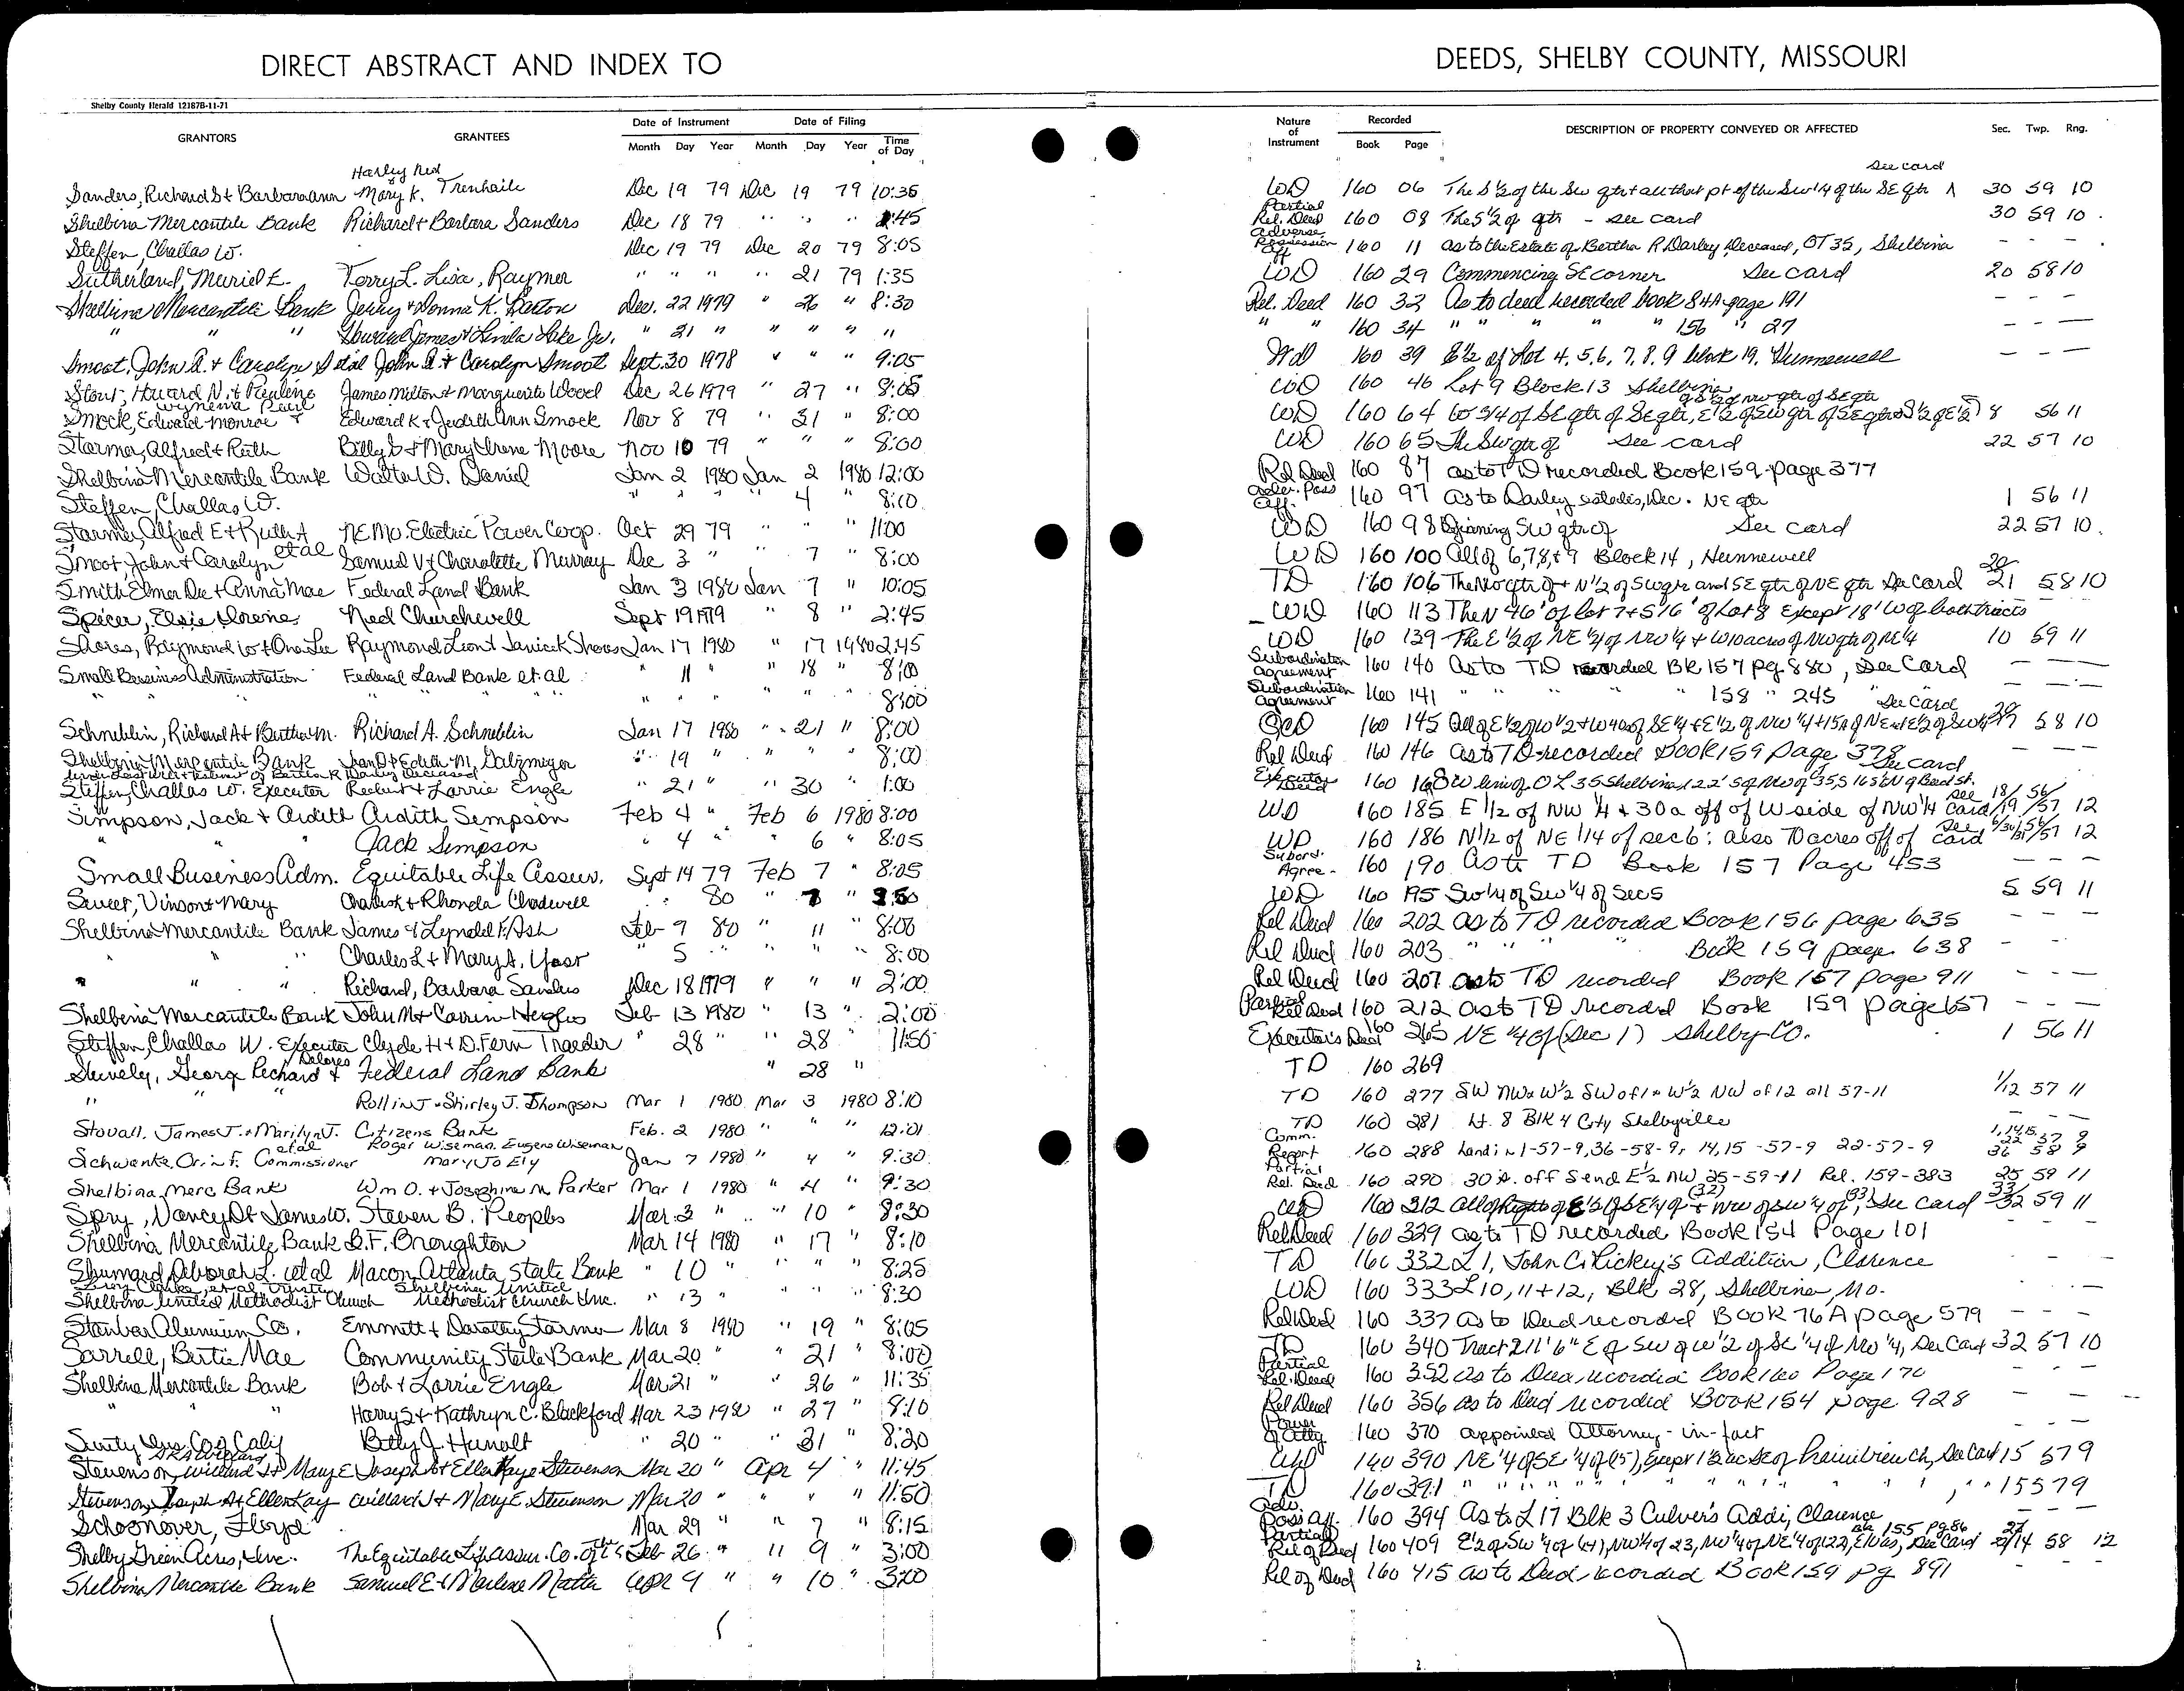 DIRECT ABSTRACT AND INDEX TO
DEEDS, SHELBY COUNTY, MISSOURI
Shelby County Herald 12187B-11-71
GRANTORS GRANTEES Date of Instrument Month Day Year Date of Filing Month Day Year Time of Day Nature of Instrument Recorded Book Page DESCRIPTION OF PROPERTY CONVEYED OR AFFECTED Sec. Twp. Rng.
Harley Ned See card
Sanders, Richard S + Barbara Ann Mary K. Trenhaile Dec 19 79 Dec 19 79 10:35 WD 160 06 The S 1/2 of the SW qtr + all that pt of the SW 1/4 of the SE qtr 30 59 10
Shelbina Mercantile Bank Richard + Barbara Sanders Dec 18 79 " " " :45 Partial Rel. Deed 160 08 The S 1/2 of qtr - see card 30 59 10
Steffen, Challas W. Dec 19 79 Dec 20 79 8:05 Adverse Possession Aff 160 11 As to the Estate of Bertha R Darley, Deceased, OT 35, Shelbina - - -
Sutherland, Muriel E. Terry L. Lisa, Raymer " " " " 21 79 1:35 WD 160 29 Commencing SE corner See card 20 58 10
Shelbina Mercantile Bank Jerry + Donna K. Dec. 22 1979 " 26 " 8:30 Rel. Deed 160 32 As to deed recorded book 84A page 191 - - -
" " " James + Linda Lake Jr. " 21 " " " " " " " 160 34 " " " " " 156 " 27 - - -
Smoot, John A. + Carolyn S etal John A. + Carolyn Smoot Sept. 30 1978 " " " 9:05 WD 160 39 E 1/2 of Lot 4, 5, 6, 7, 8, 9 block 19, Hunnewell - - -
Stout, Howard N. + Pauline James Milton + Marguerite Wood Dec 26 1979 " 27 " 8:05 WD 160 46 Lot 9 Block 13 Shelbina
Smock, Edward Monroe + Wynema Pearl Edward K + Judith Ann Smock Nov 8 79 " 31 " 8:00 WD 160 64 W 3/4 of SE qtr of SE qtr, E 1/2 of SW qtr of SE qtr 8 56 11
Starmer, Alfred + Ruth Billy + Mary Irene Moore Nov 10 79 " " " 8:00 WD 160 65 The SW qtr of See card 22 57 10
Shelbina Mercantile Bank Walter W. Daniel Jan 2 1980 Jan 2 1980 12:00 Rel Deed 160 87 as to TD recorded Book 159 page 377
Steffen, Challas W. " " " 4 " 8:10 Adver. Poss Aff. 160 97 As to Darley estates, Dec. NE qtr 1 56 11
Starmer, Alfred E + Ruth A NEMO Electric Power Coop. Oct 29 79 " " " 11:00 WD 160 98 Beginning SW qtr of See card 22 57 10
Smoot, John + Carolyn et al Samuel V + Charolette Murray Dec 3 " " 7 " 8:00 WD 160 100 All of 6, 7, 8, + 9 Block 14, Hunnewell
Smith Elmer Dee + Anna Mae Federal Land Bank Jan 3 1980 Jan 7 " 10:05 TD 160 106 The NW qtr of + N 1/2 of SW qtr and SE qtr of NE qtr See Card 20 21 58 10
Spicer, Elsie Florine Ned Churchwell Sept 19 1979 " 8 " 2:45 WD 160 113 The N 46' of lot 7 + S 16' of Lot 8 Except 18' W of both tracts
Shores, Raymond W + Ona Lee Raymond Leon + Janice K Shores Jan 17 1980 " 17 1980 2:45 WD 160 139 The E 1/2 of NE 1/4 of NW 1/4 + W 10 acres of NW qtr of NE 1/4 10 59 11
Small Business Administration Federal Land Bank et al " 11 " " 18 " 8:00 Subordination Agreement 160 140 As to TD recorded Bk 157 pg 880, See Card - - -
" " " " " " " " " " 8:00 Subordination Agreement 160 141 " " " " 158 " 245 " See Card - - -
Schneblin, Richard A + Bertha M. Richard A. Schneblin Jan 17 1980 " 21 " 8:00 QCD 160 145 58 10
Shelbina Mercantile Bank + Edith M. Salzmeyer " 19 " " " " 8:00 Rel Deed 160 146 as to TD recorded Book 159 page 378
Under Last Will + Testament of Bertha R Darley Deceased See Card
Steffen, Challas W. Executor Robert + Lorrie Engle " 21 " " 30 " 1:00 Executor Deed 160 168
Simpson, Jack + Ardith Ardith Simpson Feb 4 " Feb 6 1980 8:00 WD 160 185 E 1/2 of NW 1/4 + 30a off of W side of NW 1/4 see card 18/19 56/57 12
" " Jack Simpson " 4 " 6 " 8:05 WD 160 186 N 1/2 of NE 1/4 of sec 6; also 70 acres off of see card 12
Small Business Adm. Equitable Life Assur. Sept 14 79 Feb 7 " 8:05 Subord. Agree- 160 190 As to TD Book 157 Page 453 - - -
Sweet, Vinson + Mary Charles K + Rhonda Chadwell 80 " " WD 160 195 SW 1/4 of SW 1/4 of Sec 5 5 59 11
Shelbina Mercantile Bank James + Lyndell F. Ash Feb 9 80 " 11 " 8:00 Rel Deed 160 202 as to TD recorded Book 156 page 635 - - -
" " " Charles L + Mary A. Yost " 5 " " " " 8:00 Rel Deed 160 203 " " " " Book 159 page 638 - - -
" " " Richard, Barbara Sanders Dec 18 1979 " " " 2:00 Rel Deed 160 207 as to TD recorded Book 157 page 911 - - -
Shelbina Mercantile Bank John M + Corrin Feb 13 1980 " 13 " 2:00 Partial Rel Deed 160 212 as to TD recorded Book 159 page 657 - - -
Steffen, Challas W. Executor Clyde H + D. Fern Traeder " 28 " " 28 " 11:50 Executor's Deed 160 265 NE 1/4 of (Sec 1) Shelby Co. 1 56 11
Shively, George Richard + Delores Federal Land Bank " 28 " TD 160 269
" " " Rollin J + Shirley J. Thompson Mar 1 1980 Mar 3 1980 8:10 TD 160 277 SW NW + W 1/2 SW of 1 + W 1/2 NW of 12 all 57-11 1/12 57 11
Stovall, James J. + Marilyn J. Citizens Bank Feb. 2 1980 " " " 12:01 TD 160 281 Lt. 8 Blk 4 City Shelbyville - - -
Schwanke, Orin F. Commissioner et al Roger Wiseman, Eugene Wiseman Mary Jo Ely Jan 7 1980 " 4 " 9:30 Comm. Report 160 288 Land in 1-57-9, 36-58-9, 14,15-57-9 22-57-9 1,14,15, 22 57 9 36 58 9
Shelbina Merc Bank Wm O. + Josephine M Parker Mar 1 1980 " 4 " 9:30 Partial Rel. Deed 160 290 30 A. off S end E 1/2 NW 25-59-11 Rel. 159-383 25 59 11
Spry, Nancy D + James W. Steven B. Peoples Mar 3 " " 10 " 8:30 WD 160 312 See Card 33 32 59 11
Shelbina Mercantile Bank B.F. Broughton Mar 14 1980 " 17 " 8:10 Rel Deed 160 329 as to TD recorded Book 154 Page 101 - - -
Shumard, Deborah L. et al Macon, Atlanta State Bank " 10 " " " " 8:25 TD 160 332 L 1, John C. Rickey's Addition, Clarence - -
Shelbina United Methodist Church Shelbina United Methodist Church Inc. " 13 " " " " 8:30 WD 160 333 L 10, 11 + 12, Blk 28, Shelbina, Mo.
Stanbar Aluminum Co. Emmett + Dorothy Starmer Mar 8 1980 " 19 " 8:05 Rel Deed 160 337 as to Deed recorded Book 76A page 579 - - -
Sarrell, Bertie Mae Community State Bank Mar 20 " " 21 " 8:00 TD 160 340 Tract 211'6" E of SW of W 1/2 of SE 1/4 of NW 1/4, See Card 32 57 10
Shelbina Mercantile Bank Bob + Lorrie Engle Mar 21 " " 26 " 11:35 Partial Rel. Deed 160 352 as to Deed recorded Book 160 Page 170 - - -
" " " Harry S + Kathryn C. Blackford Mar 23 1980 " 27 " 8:10 Rel Deed 160 356 as to Deed recorded Book 154 page 928 - - -
Surity Ins. Co of Calif Betty J. Hunolt " 20 " " 31 " 8:20 Power of Atty 160 370 appointed Attorney-in-fact
Stevenson, Willard J + Mary E Joseph A + Ella Kaye Stevenson Mar 20 " Apr 4 " 11:45 WD 160 390 See Card 15 57 9
Stevenson, Joseph A + Ella Kay Willard J + Mary E. Stevenson Mar 20 " " " " 11:50 TD 160 391 " " " " " " 15 57 9
Schoonover, Floyd Mar 29 " " 7 " 8:15 Adv. Poss Aff. 160 394 As to L 17 Blk 3 Culver's Addi, Clarence - - -
Shelby Green Acres, Inc. The Equitable Life Assur. Co. of U.S. Feb 26 " " 9 " 3:00 Partial Rel of Deed 160 409 Bk 155 Pg 86 See Card 58 12
Shelbina Mercantile Bank Samuel E + Marlene Matter Apr 9 " " 10 " 3:00 Rel of Deed 160 415 as to Deed recorded Book 159 pg 891